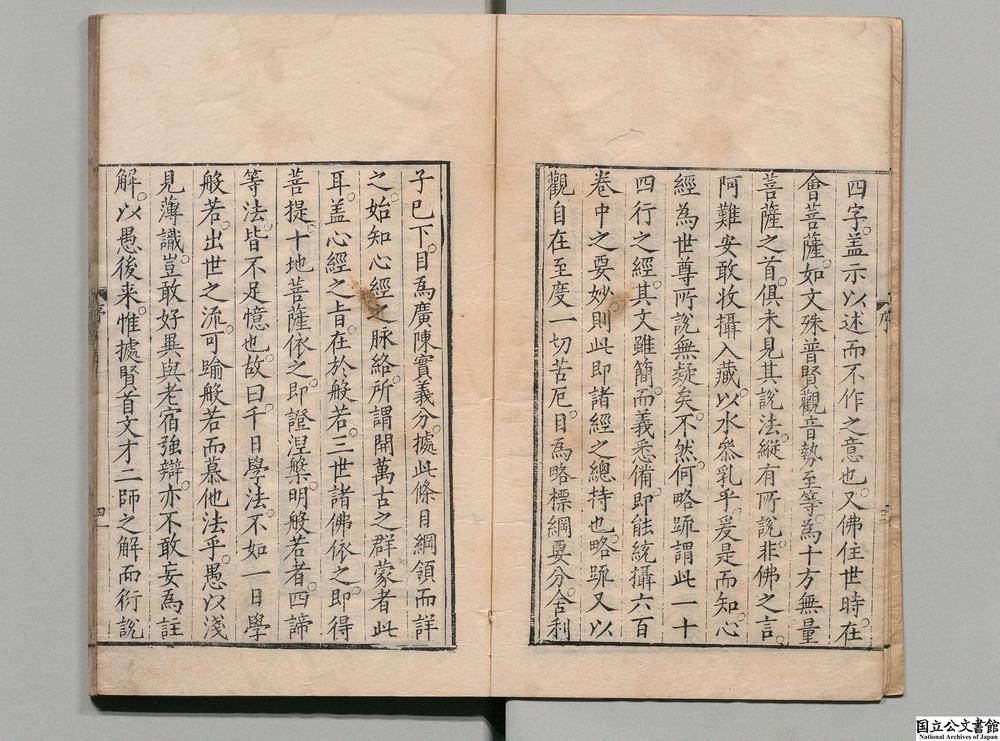 四字。蓋示以述而不作之意也。又佛住世時。在
會菩薩。如文殊普賢觀音勢至等。為十方無量
菩薩之首。俱未見其說法。縱有所說。非佛之言。
阿難安敢收攝入藏。以水叅乳乎。爰是而知。心
經為世尊所說無疑矣。不然。何略䟽謂此一十
四行之經。其文雖簡。而義悉備。即能統攝六百
卷中之要妙。則此即諸經之總持也。略䟽又以
觀自在至度一切苦厄。目為略標綱要分。舍利
序
三
子已下。目為廣陳實義分。據此條目綱領而詳
之。始知心經之脉絡。所謂開萬古之群蒙者此
耳。盖心經之旨。在於般若。三世諸佛依之。即得
菩提。十地菩薩依之。即證涅槃。明般若者。四諦
等法。皆不足憶也。故曰。千日學法。不如一日學
般若。出世之流。可踰般若而慕他法乎。愚以淺
見薄識。豈敢好異與老宿強辯。亦不敢妄為註
解。以愚後来。惟據賢首文才二師之解而衍說
序
四
国立公文書館
National Archives of Japan